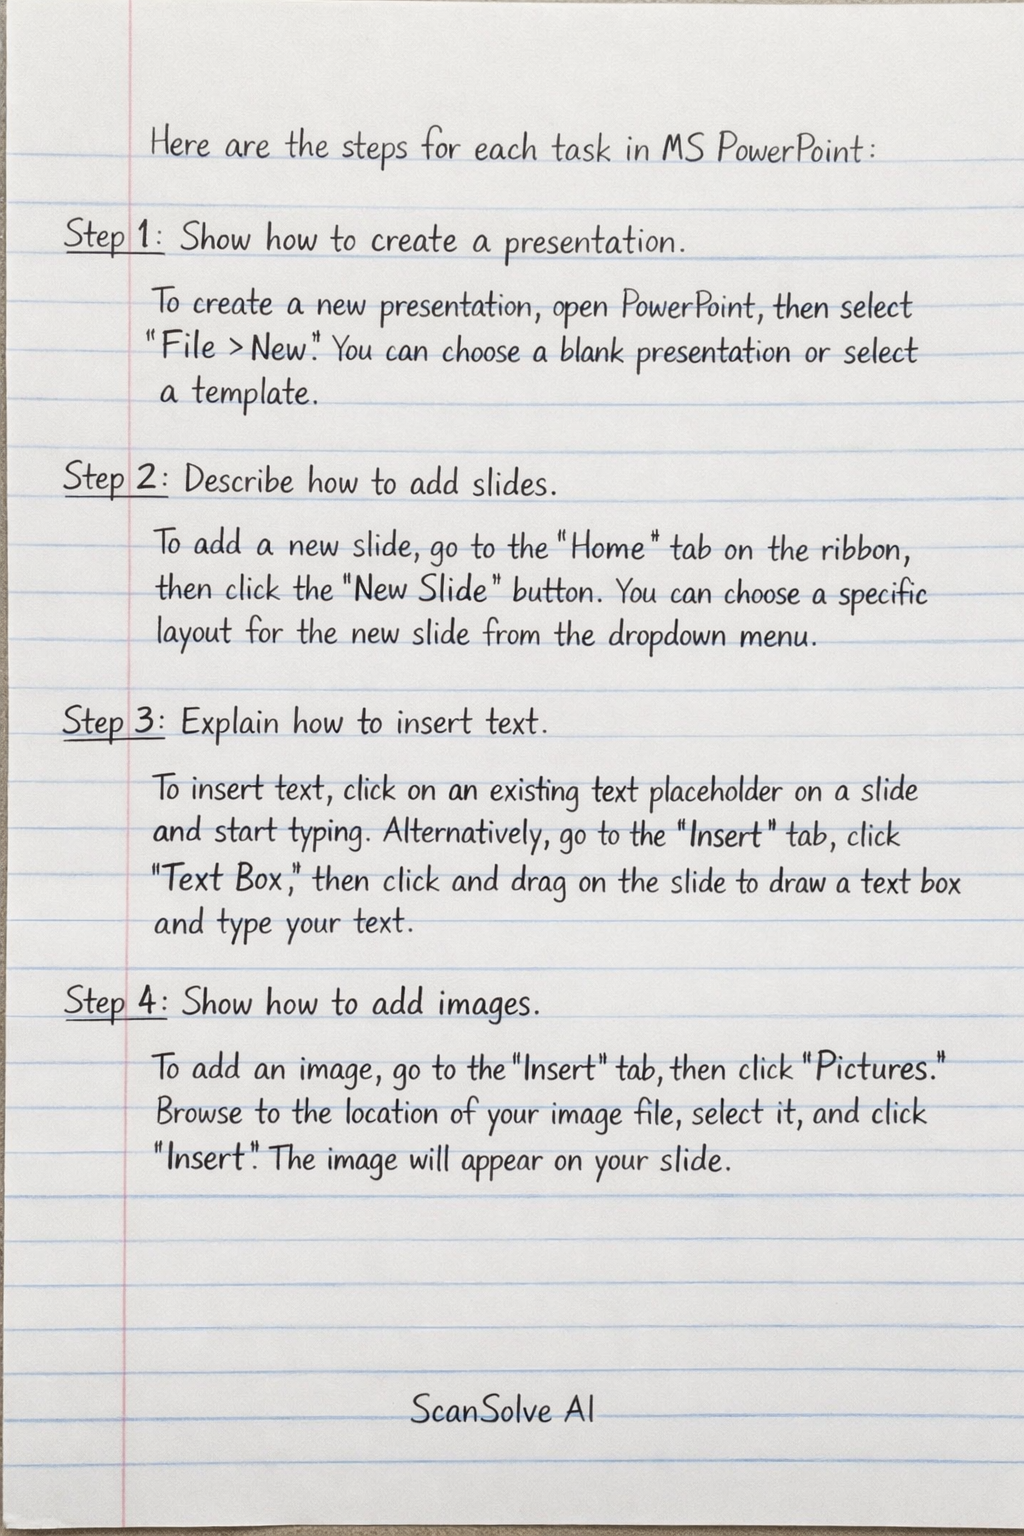 Here are the steps for each task in MS PowerPoint:
Step 1: Show how to create a presentation.
To create a new presentation, open PowerPoint, then select
"File > New." You can choose a blank presentation or select
a template.
Step 2: Describe how to add slides.
To add a new slide, go to the "Home" tab on the ribbon,
then click the "New Slide" button. You can choose a specific
layout for the new slide from the dropdown menu.
Step 3: Explain how to insert text.
To insert text, click on an existing text placeholder on a slide
and start typing. Alternatively, go to the "Insert" tab, click
"Text Box," then click and drag on the slide to draw a text box
and type your text.
Step 4: Show how to add images.
To add an image, go to the "Insert" tab, then click "Pictures."
Browse to the location of your image file, select it, and click
"Insert". The image will appear on your slide.
ScanSolve AI